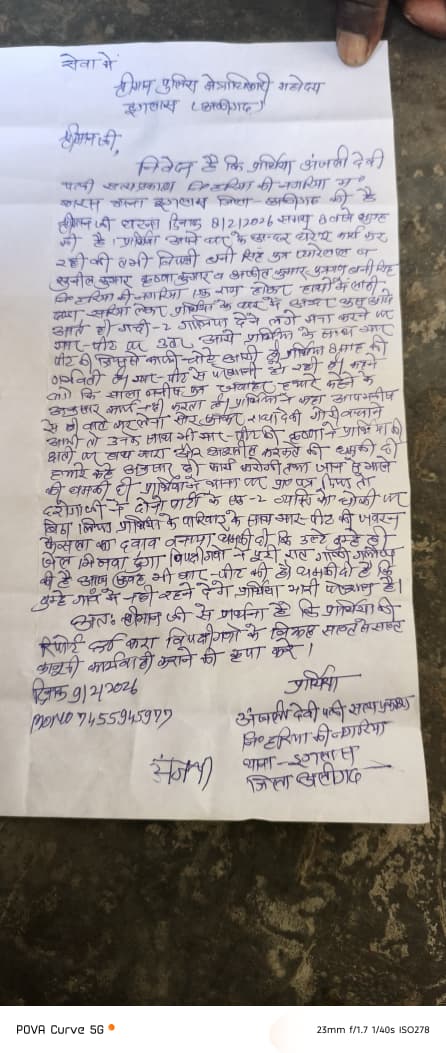 सेवा में
श्रीमान पुलिस क्षेत्राधिकारी महोदय
इगलास (अलीगढ़)
श्रीमान जी,
निवेदन है कि प्रार्थिया अंजली देवी
पत्नी सत्यप्रकाश की नगरिया
थाना इगलास जिला-अलीगढ़ की है
श्रीमान जी घटना दिनांक 8/2/2026 समय 8 बजे सुबह
की है। प्रार्थिया अपने घर के अन्दर घरेलू कार्य कर
रही थी तभी विपक्षी बनी सिंह पुत्र प्यारेलाल व
सुनील कुमार कृष्णा कुमार व अनिल कुमार पुत्रगण बनी सिंह
की नगरिया एक राय होकर हाथों में लाठी
डण्डा सरिया लेकर प्रार्थिया के घर के अन्दर घुस आये
आते ही गन्दी-2 गालियां देने लगे मना करने पर
मार-पीट पर उतर आये प्रार्थिया के साथ मार
पीट की जिससे काफी चोटें आयी है प्रार्थिया 8 माह की
गर्भवती है मार-पीट से परेशानी हो रही है। कहने
लगे कि साला हमारे कहने के
अनुसार कार्य नहीं करता है। प्रार्थिया ने कहा
से ही बात कर लेना शोर सुनकर देवी बचाने
आयी तो उनके साथ भी मार-पीट की कृष्णा ने प्रार्थिया की
छाती पर हाथ मारा और की धमकी दी
हमारे कहे अनुसार ही कार्य करोगी तथा जान से मारने
की धमकी दी प्रार्थिया ने थाना पर प्रा० पत्र दिया तो
दरोगाजी ने दोनो पार्टी के एक-2 व्यक्ति को चौकी पर
बिठा लिया प्रार्थिया के परिवार के साथ मार-पीट की जबरन
फैसला का दवाब बनाया धमकी दी कि उल्टे तुम्हे ही
जेल भिजवा दूंगा विपक्षीगणों ने पूरी रात गाली गलौज
की है आज सुबह भी मार-पीट की है। धमकी दी है कि
तुम्हे गांव में नहीं रहने देंगे प्रार्थिया भारी परेशान है।
अतः श्रीमान जी से प्रार्थना है कि प्रार्थिया की
रिपोर्ट दर्ज करा विपक्षीगणों के विरूद्ध सख्त से सख्त
कानूनी कार्यवाही कराने की कृपा करें।
दिनांक 9/2/2026
MONO 7455945977
प्रार्थिया
अंजली देवी पत्नी सत्यप्रकाश
की नगरिया
थाना-इगलास
जिला अलीगढ़
अंजली
POVA Curve 5G
23mm f/1.7 1/40s ISO278